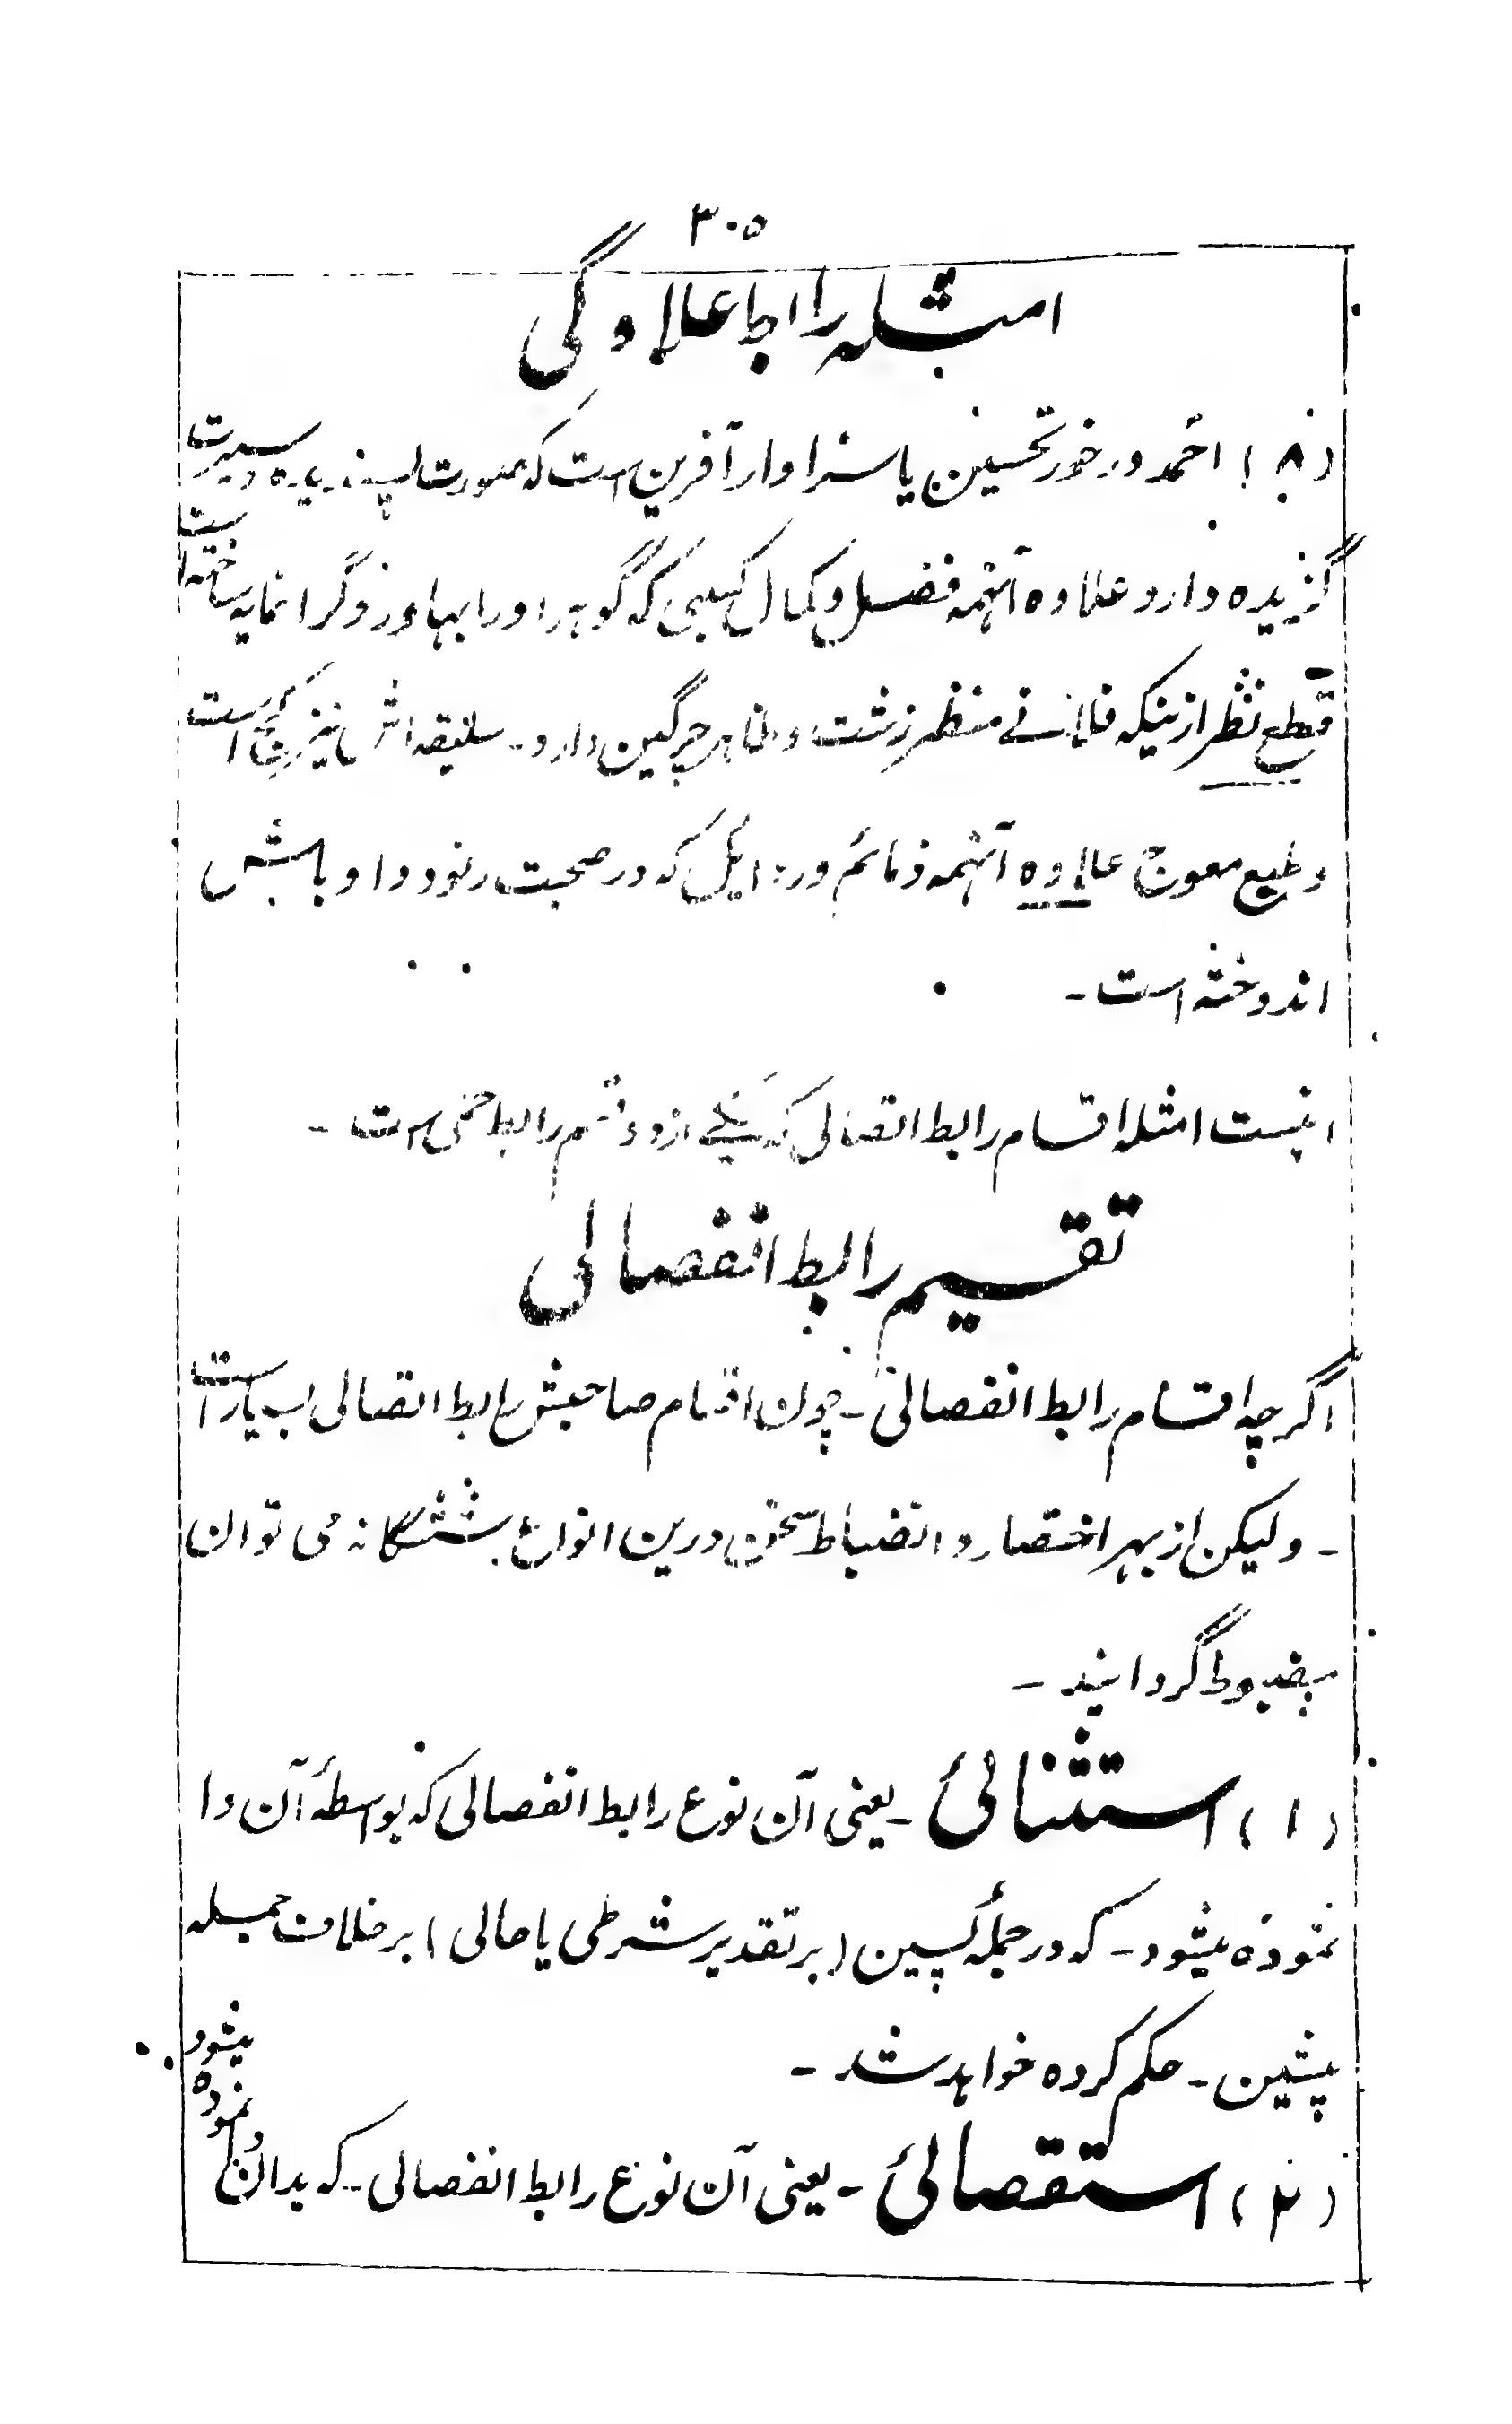 ۳۰۵
امثله رابط علاوگی
(۸) احمد در خور تحسین یا سزاوار آفرین است که صورت پسندیده و سیرت
گزیده دارد علاوه آنهمه فضل و کمال کسبی که گوهر او را بهاور و گرانمایه ساخته است
قطع نظر ازینکه فلانے منظر زشت و ظاهر چرگین دارد - سلیقه اش نیز کج است
و طبع معوج علاوه آنهمه ذمائم و رذایل که در صحبت رنود و اوباش
اندوخته است -
اینست امثله اقسام رابط اتصالی که یکے از دو قسم رابط است -
تقسیم رابط انفصالی
اگرچه اقسام رابط انفصالی - چون اقسام صاحبش رابط اتصالی بسیار است
- ولیکن از بهر اختصار و انضباط سخن درین انواع ششگانه می توان
مضبوط گردانید -
(۱) استثنائی - یعنی آن نوع رابط انفصالی که بواسطهٔ آن وا
نموده میشود - که در جملهٔ پسین (بر تقدیر شرطی یا حالی) بر خلاف جمله
پیشین - حکم کرده خواهد شد -
(۲) استقصائی - یعنی آن نوع رابط انفصالی - که بدان وا نموده میشود